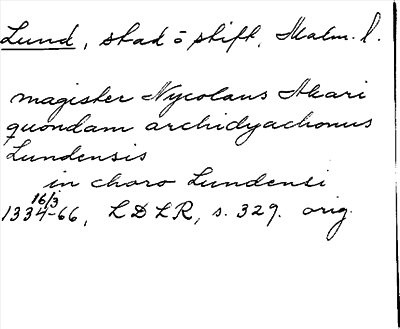 Lund, stad o stift, Malm. l.
magister Nycolaus Akari
quondam archidyachonus
Lundensis
in choro Lundensi
16/3
1334-66, LDLR, s. 329. orig.